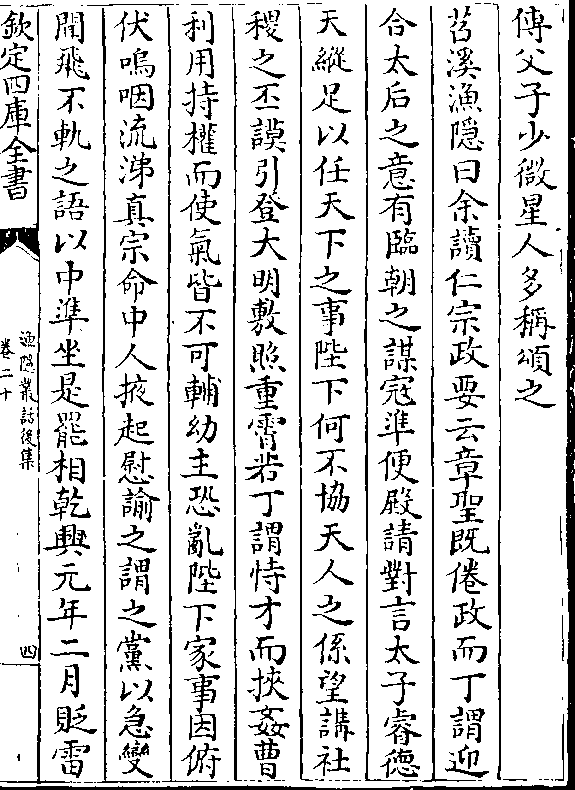 傅父子少微星人多稱頌之
苕溪漁隱曰余讀仁宗政要云章聖既倦政而丁謂迎
合太后之意有臨朝之謀寇準便殿請對言太子睿德
天縱足以任天下之事陛下何不協天人之係望講社
稷之丕謨引登大明敷照重霄若丁謂恃才而挾姦曹
利用持權而使氣皆不可輔幼主恐亂陛下家事因俯
伏嗚咽流涕真宗命中人掖起慰諭之謂之黨以急變
聞飛不軌之語以中準坐是罷相乾興元年二月貶雷
欽定四庫全書
漁隱叢話後集
卷二十
四